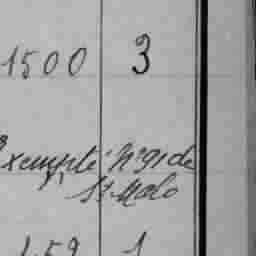 1500 3
Exempté N° 91 de
St Malo
1.59 1